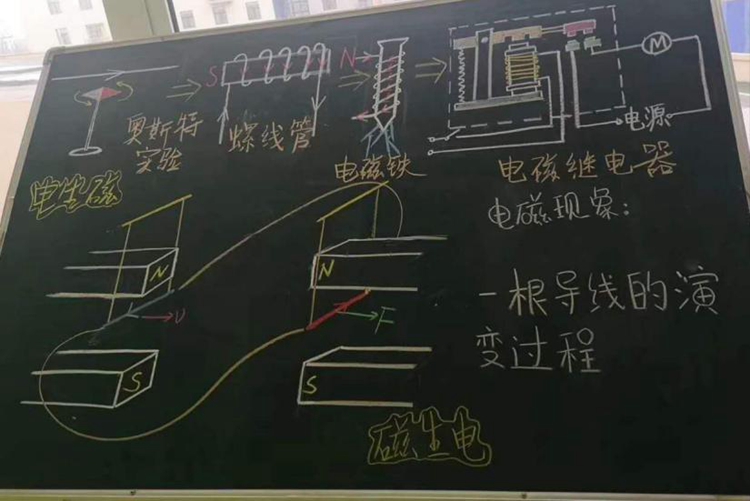 S N
M
电源
奥斯特
实验
螺线管
电磁铁
电磁继电器
电生磁
电磁现象:
N
N
一根导线的演
变过程
υ
F
S
S
磁生电